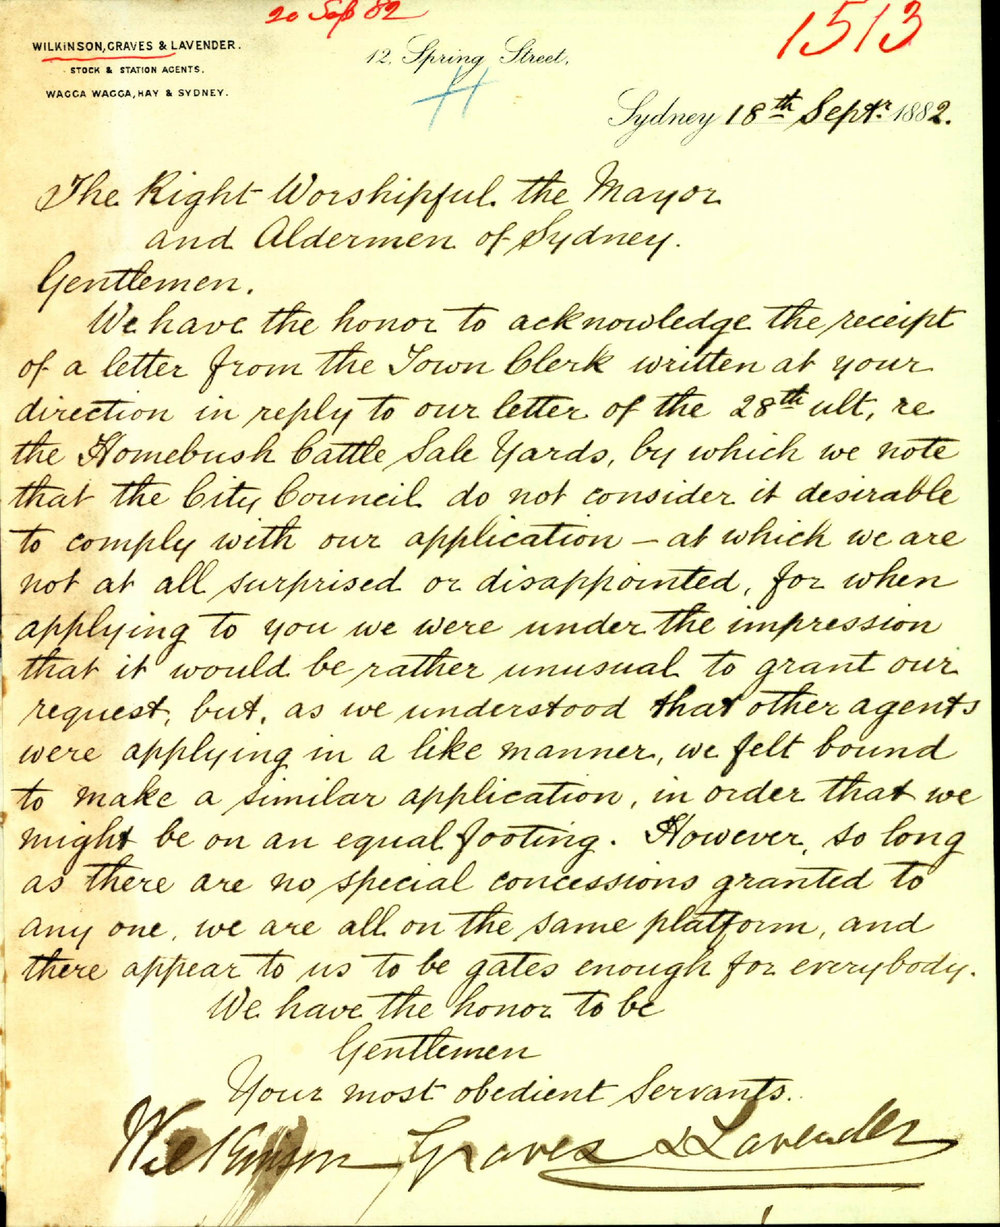 20 Sep 82
1513
WILKINSON, GRAVES & LAVENDER.
STOCK & STATION AGENTS.
WAGGA WAGGA, HAY & SYDNEY.
12, Spring Street,
H
Sydney 18th Septr. 1882.
The Right Worshipful the Mayor
and Aldermen of Sydney.
Gentlemen.
We have the honor to acknowledge the receipt
of a letter from the Town Clerk written at your
direction in reply to our letter of the 28th ult, re
the Homebush Cattle Sale Yards, by which we note
that the City Council do not consider it desirable
to comply with our application – at which we are
not at all surprised or disappointed, for when
applying to you we were under the impression
that it would be rather unusual to grant our
request, but, as we understood that other agents
were applying in a like manner, we felt bound
to make a similar application, in order that we
might be on an equal footing. However, so long
as there are no special concessions granted to
any one, we are all on the same platform, and
there appear to us to be gates enough for everybody.
We have the honor to be
Gentlemen
Your most obedient Servants.
Wilkinson Graves & Lavender